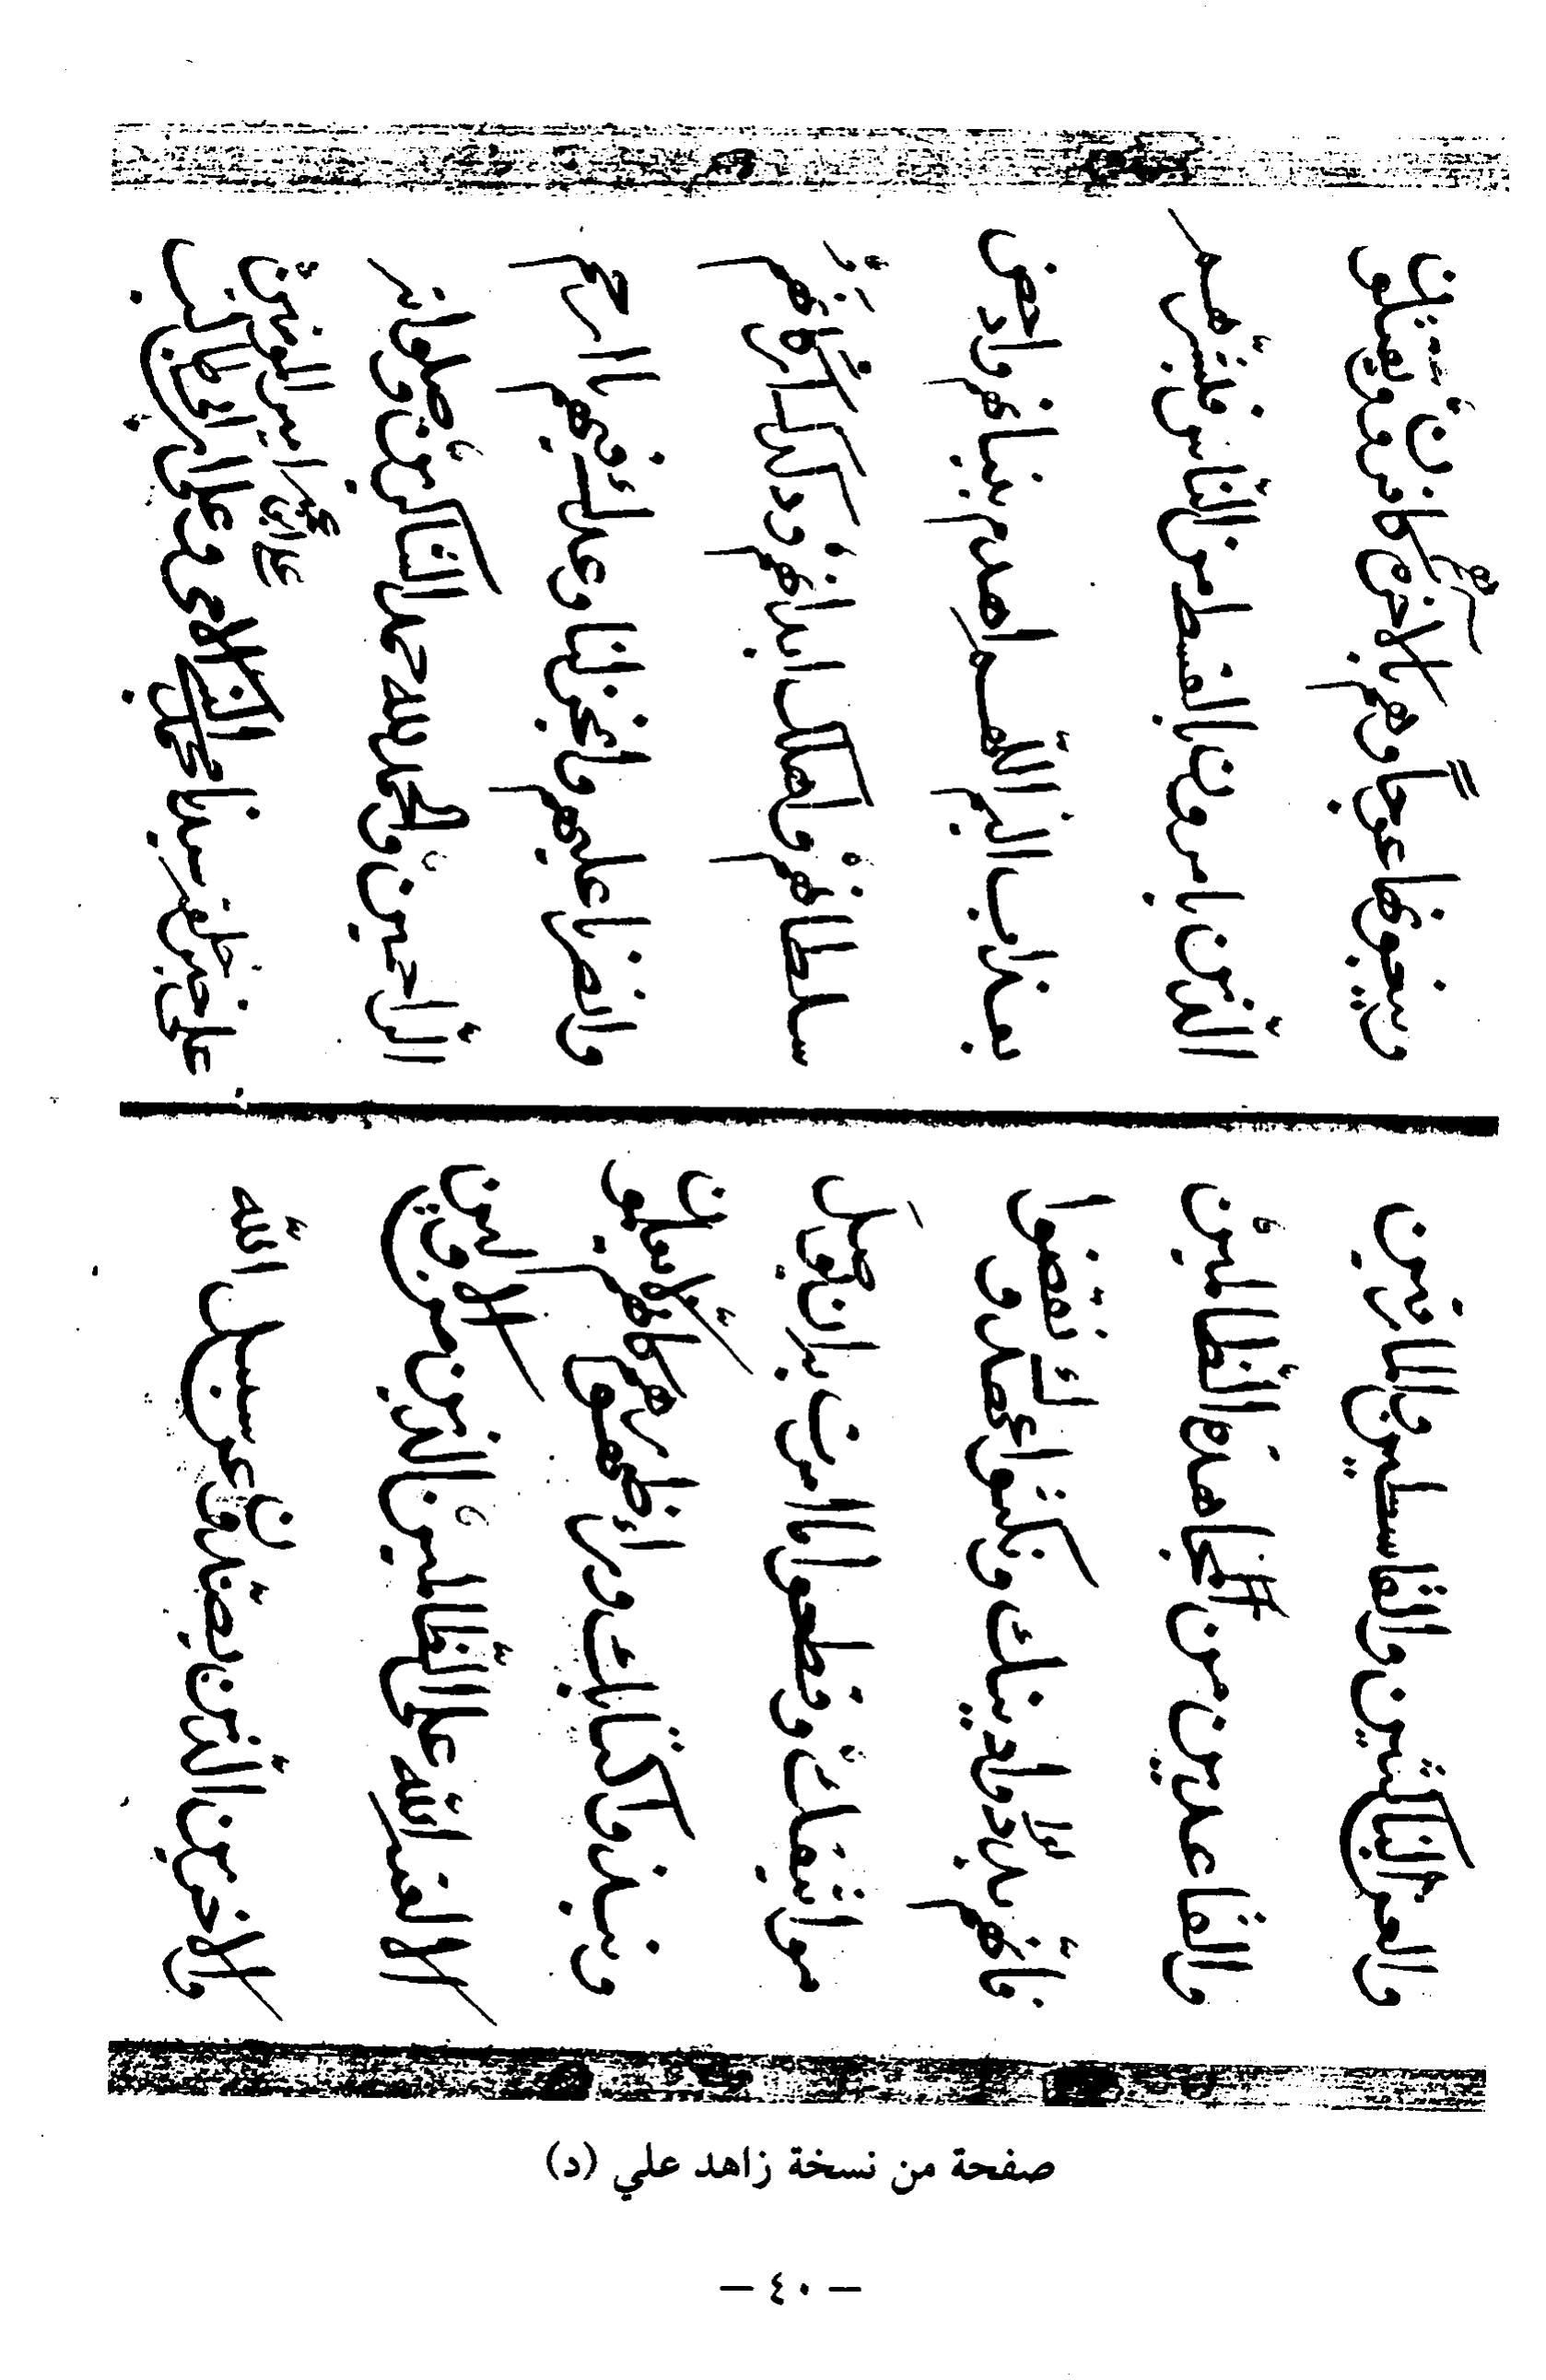 والعن الناكثين والقاسطين والمارقين
والقاعدين من مجاهدة الظالمين
فانهم بدّلوا دينك ونكثوا عهدك و نقضوا
مواثيقك وقطعوا ما امرت به ان يوصل
ونبذوا كتابك وراء ظهورهم كانهم لا يعلمون
الا لعنة الله على الظالمين الذين من الاولين
والاخرين الذين يصدّون عن سبيل الله
ويبغونها عوجاً وهم بالاخرة هم كافرون ويقتلون
الذين يامرون بالقسط من الناس فبشّرهم
بعذاب اليم اللهم اهدم بنيانهم وادحض
سلطانهم واهلك ابدانهم ودكدك اركانهم
وانصرنا عليهم واغفر لنا وعليك فيهم يا ارحم
الراحمين والحمد لله حمد الشاكرين وصلواته
على خير خلقه سيدنا محمد النبي الامي وعلى امير المؤمنين علي بن ابي طالب
صفحة من نسخة زاهد علي (د)
— ٤٠ —